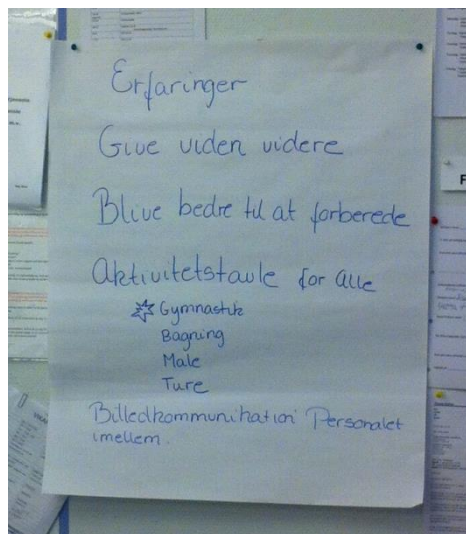 Erfaringer
Give viden videre
Blive bedre til at forberede
Aktivitetstavle for alle
Gymnastik
Bagning
Male
Ture
Billedkommunikation Personalet
imellem.